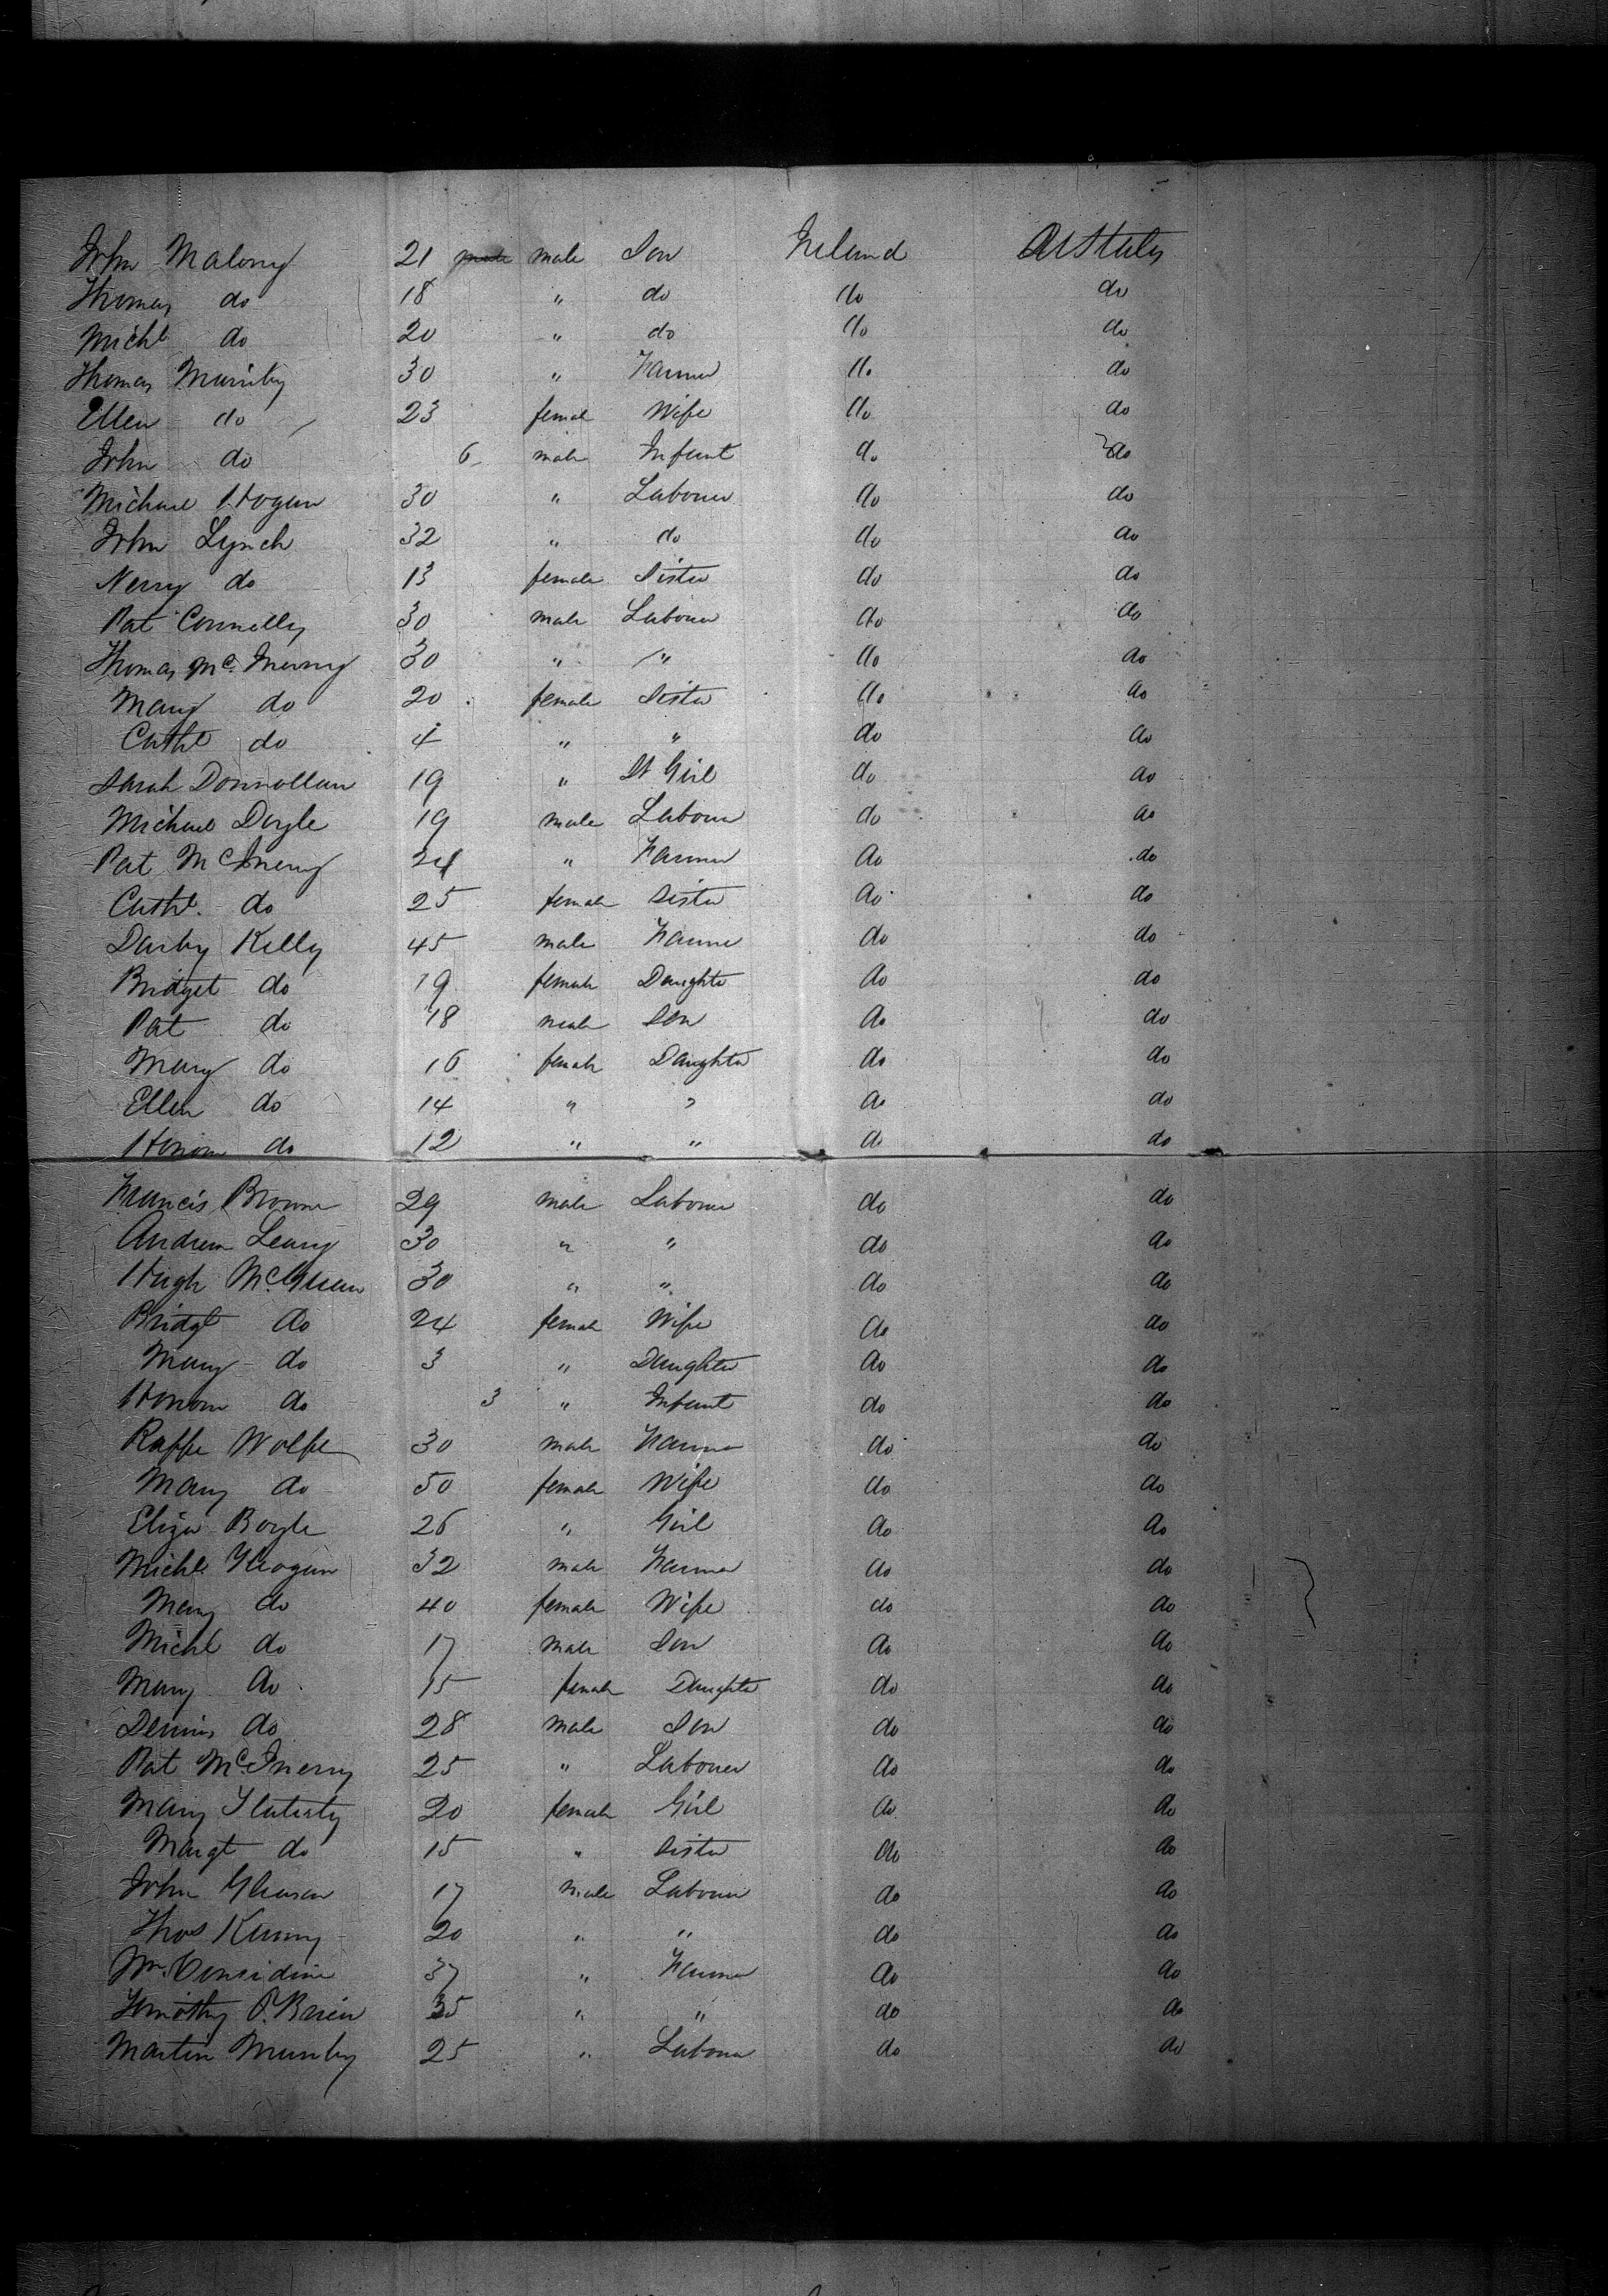 John Malony 21 male male Son Ireland U States
Thomas do 18 " do do do
Michl do 20 " do do do
Thomas Murnby 30 " Farmer do do
Ellen do 23 femal Wife do do
John do 6 male Infant do do
Michael Hogan 30 " Labourer do do
John Lynch 32 " do do do
Nerry do 13 female Sister do do
Pat Connelly 30 male Labour do do
Thomas Mc Inerny 30 " " do do
Mary do 20 female Sister do do
Cathe do 4 " " do do
Sarah Donnollan 19 " St Girl do do
Michael Doyle 19 male Labour do do
Pat McInerny 24 " Farmer do do
Cathe. do 25 female Sister do do
Darby Kelly 45 male Farmer do do
Bridget do 19 female Daughter do do
Pat do 18 male Son do do
Mary do 16 female Daughter do do
Ellen do 14 " " do do
Honora do 12 " " do do
Francis Browne 29 male Labourer do do
Andrew Leary 30 " " do do
Hugh 30 " " do do
Bridgt do 24 female Wife do do
Mary do 3 " Daughter do do
Honora do 3 " Infant do do
Raffe Wolfe 30 male Farmer do do
Mary do 50 female Wife do do
Eliza Boyle 26 " Girl do do
Michl Keogan 32 male Farmer do do
Mary do 40 female Wife do do
Michl do 17 male Son do do
Mary do 15 female Daughter do do
Dennis do 28 male Son do do
Pat McInerny 25 " Labourer do do
Mary Flaterty 20 female Girl do do
Margt do 15 " Sister do do
John Gleason 17 male Labour do do
Thos Kenny 20 " " do do
Wm. Considine 37 " Farmer do do
Timothy O'Brien 35 " " do do
Martin Murnby 25 " Labour do do